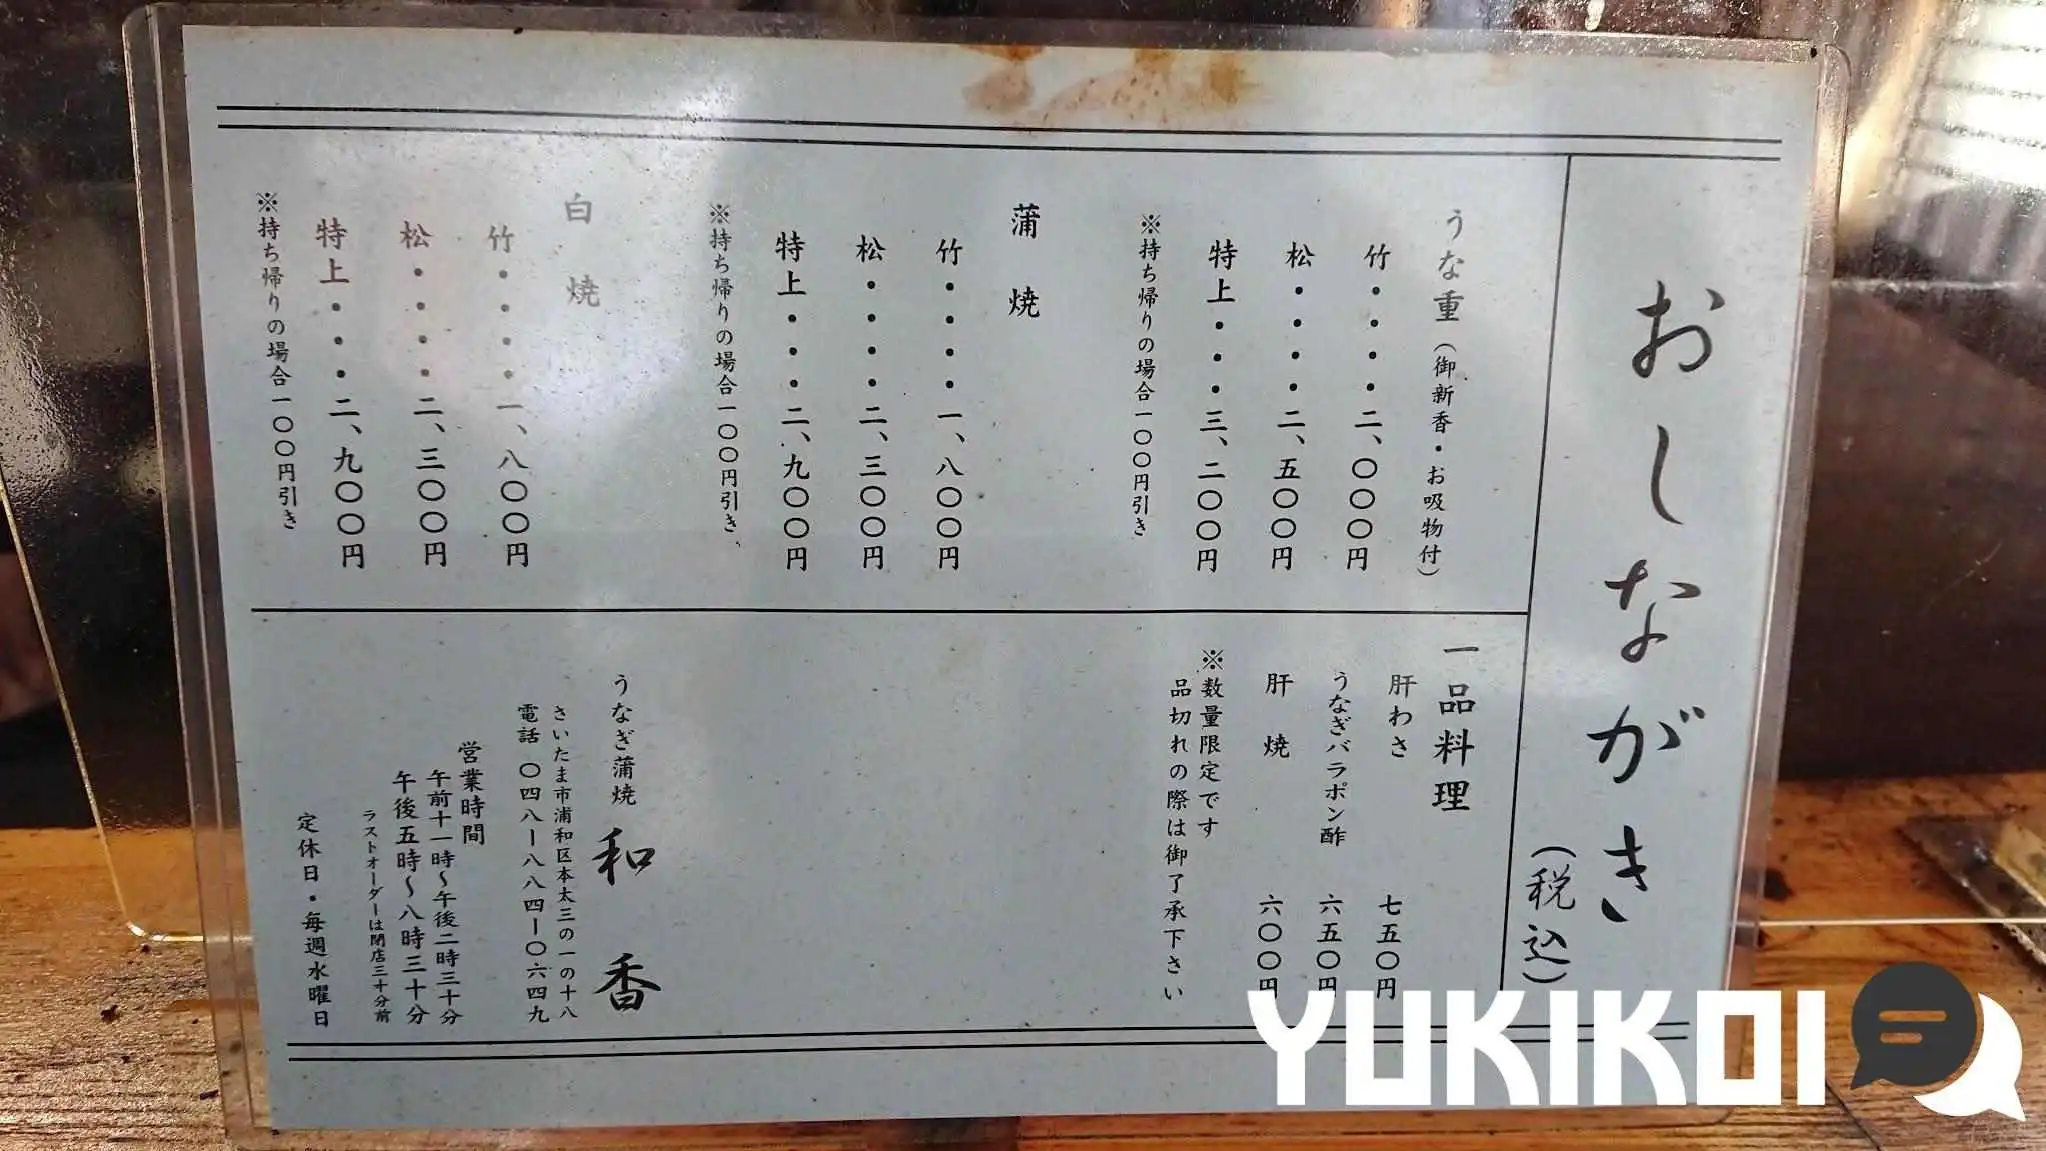 おしながき
（税込）
うな重（御新香・お吸物付）
竹・・・・二、〇〇〇円
松・・・・二、五〇〇円
特上・・・三、二〇〇円
※持ち帰りの場合一〇〇円引き
蒲焼
竹・・・・一、八〇〇円
松・・・・二、三〇〇円
特上・・・二、九〇〇円
※持ち帰りの場合一〇〇円引き
白焼
竹・・・・一、八〇〇円
松・・・・二、三〇〇円
特上・・・二、九〇〇円
※持ち帰りの場合一〇〇円引き
一品料理
肝わさ 七五〇円
うなぎバラポン酢 六五〇円
肝焼 六〇〇円
※数量限定です
品切れの際は御了承下さい
うなぎ蒲焼 和香
さいたま市浦和区本太三の一の十八
電話 〇四八ー八八四ー〇六四九
営業時間
午前十一時～午後二時三十分
午後五時～八時三十分
ラストオーダーは閉店三十分前
定休日・毎週水曜日
YUKIKOI